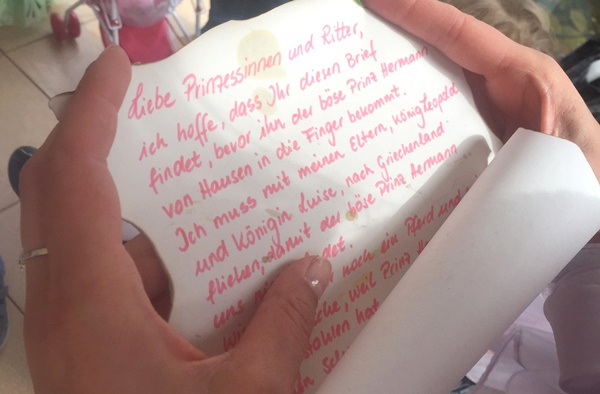 Liebe Prinzessinnen und Ritter,
ich hoffe, dass Ihr diesen Brief
findet, bevor ihn der böse Prinz Hermann
von Hausen in die Finger bekommt.
Ich muss mit meinen Eltern, König Leopold
und Königin Luise, nach Griechenland
fliehen, damit der böse Prinz Hermann
uns noch ein Pferd und
weil Prinz
hat